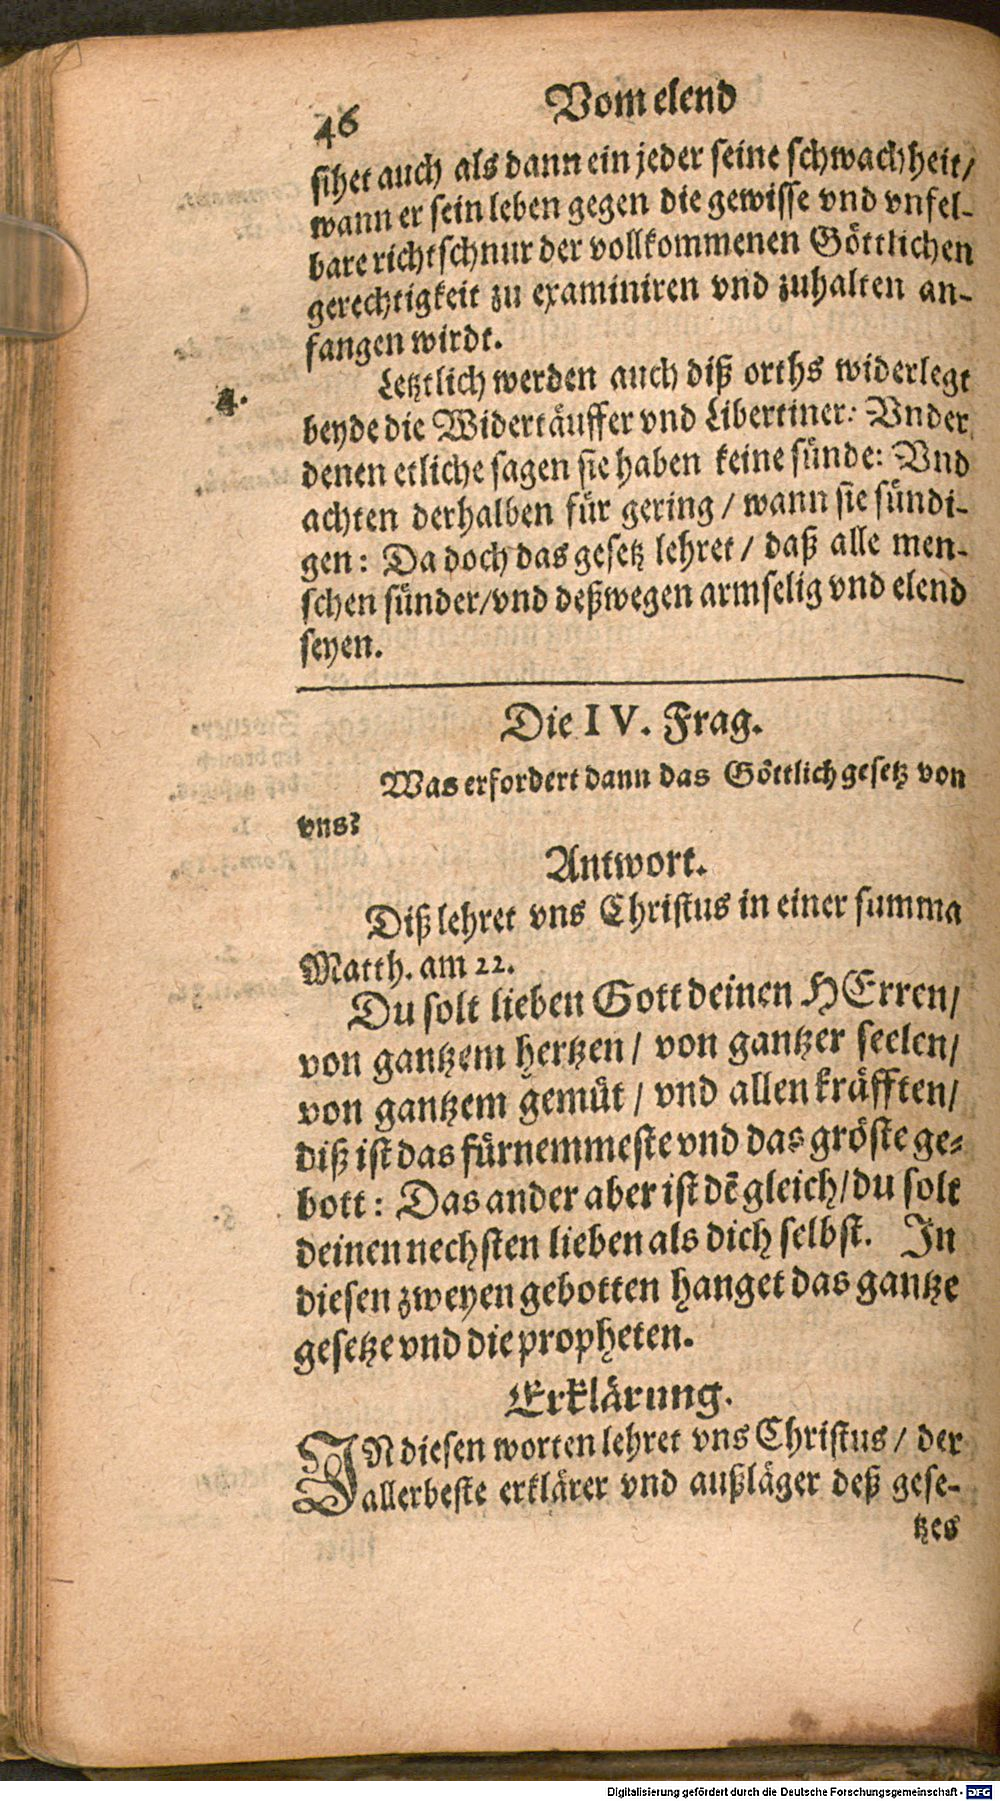 46
Vom elend
sihet auch als dann ein jeder seine schwachheit/
wann er sein leben gegen die gewisse vnd vnfel-
bare richtschnur der vollkommenen Göttlichen
gerechtigkeit zu examiniren vnd zuhalten an-
fangen wirdt.
4.
Letztlich werden auch diß orths widerlegt
beyde die Widertäuffer vnd Libertiner: Vnder
denen etliche sagen sie haben keine sünde: Vnd
achten derhalben für gering / wann sie sündi-
gen: Da doch das gesetz lehret / daß alle men-
schen sünder/vnd deßwegen armselig vnd elend
seyen.
Die IV. Frag.
Was erfordert dann das Göttlich gesetz von
vns?
Antwort.
Diß lehret vns Christus in einer summa
Matth. am 22.
Du solt lieben Gott deinen HErren/
von gantzem hertzen / von gantzer seelen/
von gantzem gemüt / vnd allen kräfften/
diß ist das fürnemmeste vnd das gröste ge-
bott: Das ander aber ist dē gleich/du solt
deinen nechsten lieben als dich selbst. In
diesen zweyen gebotten hanget das gantze
gesetze vnd die propheten.
Erklärung.
IN diesen worten lehret vns Christus / der
allerbeste erklärer vnd außläger deß gese-
tzes
Digitalisierung gefördert durch die Deutsche Forschungsgemeinschaft - DFG